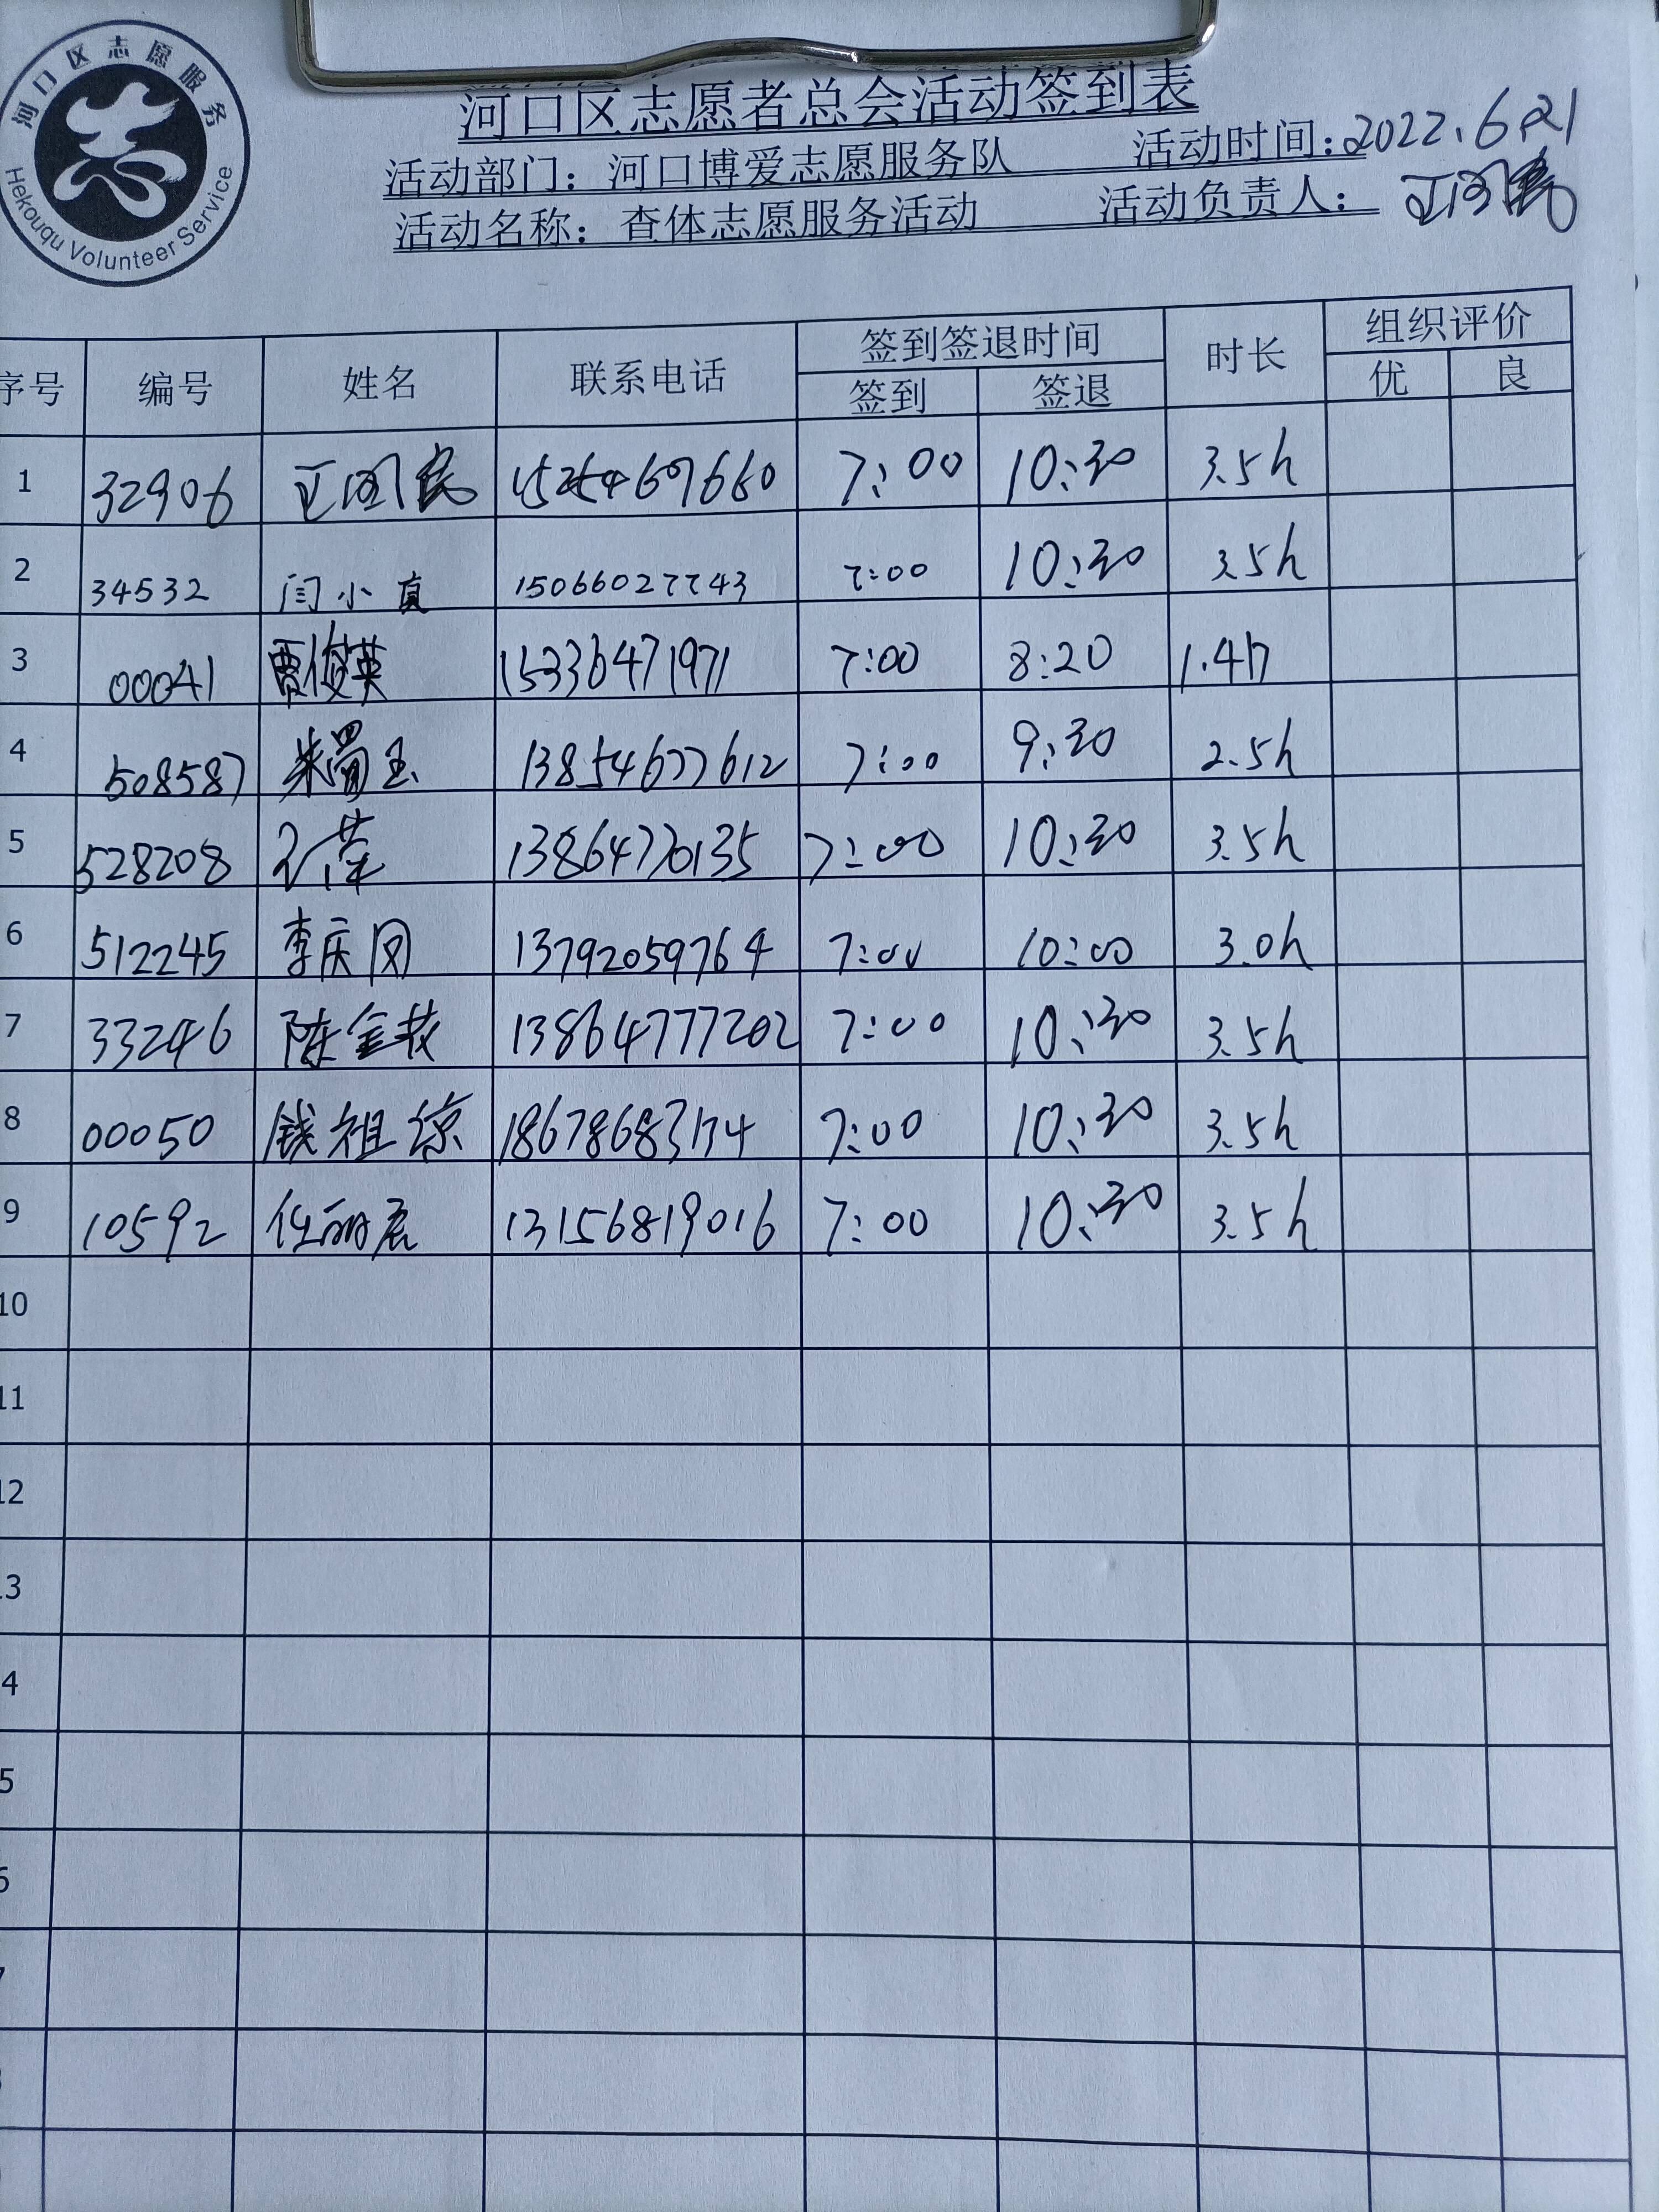 河口区志愿服务
Hekouqu Volunteer Service
河口区志愿者总会活动签到表
活动部门：河口博爱志愿服务队 活动时间：2022.6.21
活动名称：查体志愿服务活动 活动负责人：
序号 编号 姓名 联系电话 签到签退时间 时长 组织评价
签到 签退 优 良
1 32906 7:00 10:30 3.5h
2 34532 闫小真 15066027743 7:00 10:30 3.5h
3 00041 贾俊英 15336471971 7:00 8:20 1.4h
4 508587 朱蜀玉 13854677612 7:00 9:30 2.5h
5 528208 13864770135 7:00 10:30 3.5h
6 512245 李庆风 13792059764 7:00 10:00 3.0h
7 33246 陈金 13864777202 7:00 10:30 3.5h
8 00050 钱祖凉 18678683174 7:00 10:30 3.5h
9 10592 任丽 13156819016 7:00 10:30 3.5h
10
11
12
13
4
5
6
7